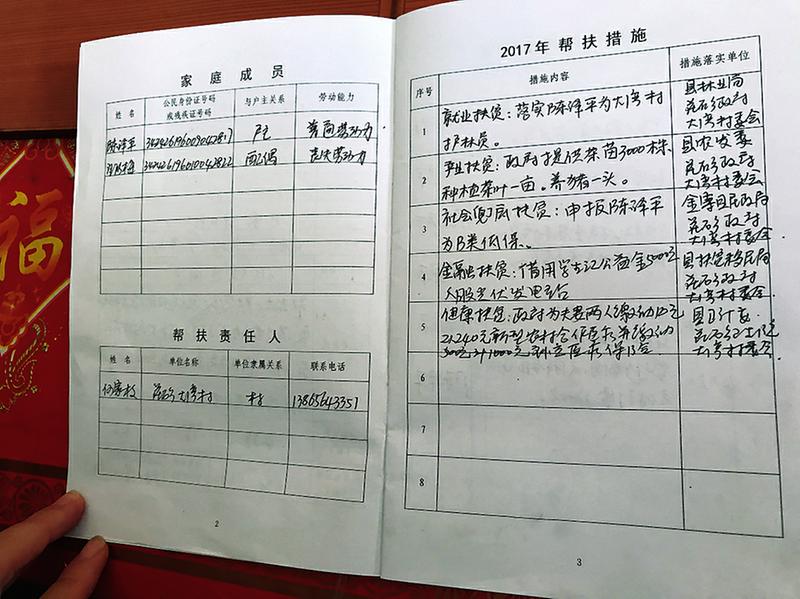 家庭成员
姓名 公民身份证号码或残疾证号码 与户主关系 劳动能力
陈泽平 户主 普通劳动力
配偶 丧失劳动力
帮扶责任人
姓名 单位名称 单位隶属关系 联系电话
何家枝 花石乡大湾村 村 13865643351
2
2017年帮扶措施
序号 措施内容 措施落实单位
1 就业扶贫：落实陈泽平为大湾村
护林员。
县林业局
花石乡政府
大湾村委会
2 产业扶贫：政府提供茶苗3000株
种植茶叶一亩。养猪一头。
县农发委
花石乡政府
大湾村委会
3 社会兜底扶贫：申报陈泽平
为B类低保。
金寨县民政局
花石乡政府
大湾村委会
4 金融扶贫：借用公益金5000元
入股光伏发电站
县扶贫移民局
花石乡政府
大湾村委会
5 健康扶贫：政府为夫妻两人缴纳120元
新型农村合作医疗并缴纳
医疗保险
县卫计委
大湾村委会
6
7
8
3
福